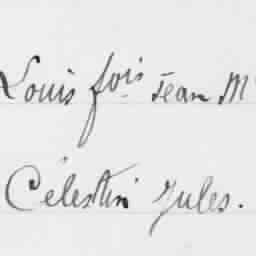 Louis fois Jean M
Célestin Jules.